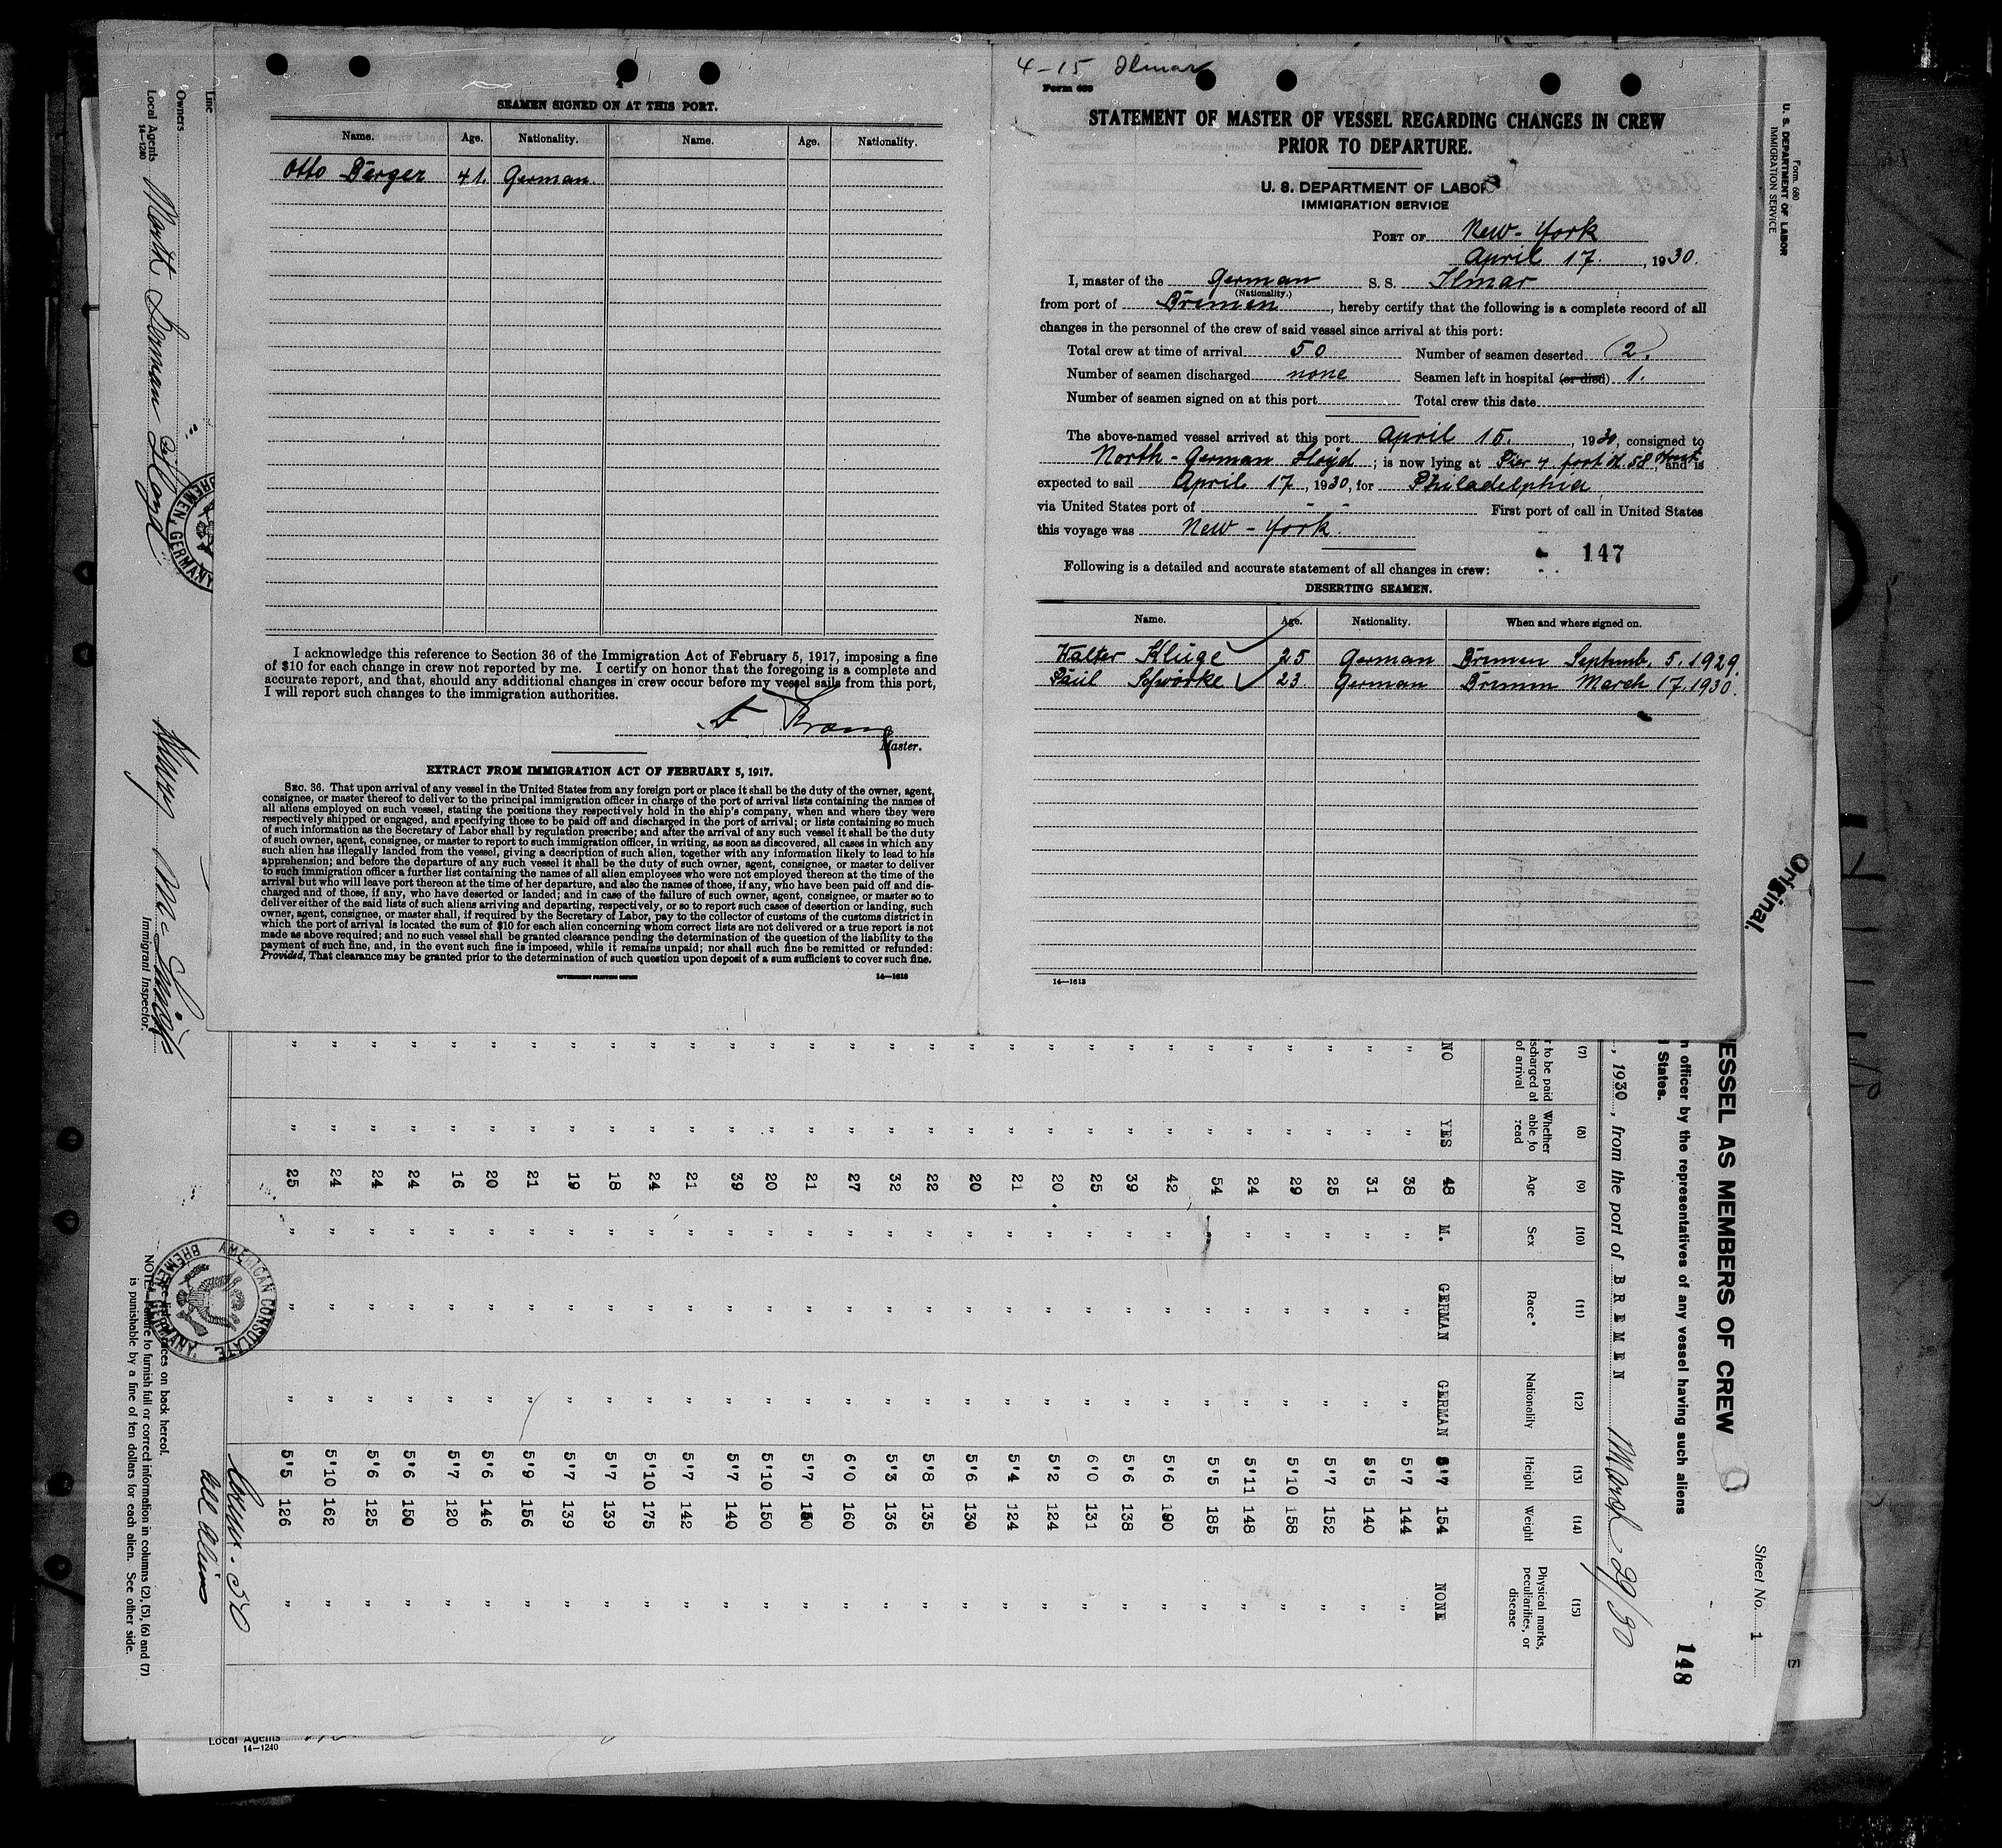 SEAMEN SIGNED ON AT THIS PORT.
Name. Age. Nationality. Name. Age. Nationality.
Otto Berger 41. German.
I acknowledge this reference to Section 36 of the Immigration Act of February 5, 1917, imposing a fine
of $10 for each change in crew not reported by me. I certify on honor that the foregoing is a complete and
accurate report, and that, should any additional changes in crew occur before my vessel sails from this port,
I will report such changes to the immigration authorities.
Master.
EXTRACT FROM IMMIGRATION ACT OF FEBRUARY 5, 1917.
SEC. 36. That upon arrival of any vessel in the United States from any foreign port or place it shall be the duty of the owner, agent,
consignee, or master thereof to deliver to the principal immigration officer in charge of the port of arrival lists containing the names of
all aliens employed on such vessel, stating the positions they respectively hold in the ship's company, when and where they were
respectively shipped or engaged, and specifying those to be paid off and discharged in the port of arrival; or lists containing so much
of such information as the Secretary of Labor shall by regulation prescribe; and after the arrival of any such vessel it shall be the duty
of such owner, agent, consignee, or master to report to such immigration officer, in writing, as soon as discovered, all cases in which any
such alien has illegally landed from the vessel, giving a description of such alien, together with any information likely to lead to his
apprehension; and before the departure of any such vessel it shall be the duty of such owner, agent, consignee, or master to deliver
to such immigration officer a further list containing the names of all alien employees who were not employed thereon at the time of the
arrival but who will leave port thereon at the time of her departure, and also the names of those, if any, who have been paid off and dis-
charged and of those, if any, who have deserted or landed; and in case of the failure of such owner, agent, consignee, or master so to
deliver either of the said lists of such aliens arriving and departing, respectively, or so to report such cases of desertion or landing, such
owner, agent, consignee, or master shall, if required by the Secretary of Labor, pay to the collector of customs of the customs district in
which the port of arrival is located the sum of $10 for each alien concerning whom correct lists are not delivered or a true report is not
made as above required; and no such vessel shall be granted clearance pending the determination of the question of the liability to the
payment of such fine, and, in the event such fine is imposed, while it remains unpaid; nor shall such fine be remitted or refunded:
Provided, That clearance may be granted prior to the determination of such question upon deposit of a sum sufficient to cover such fine.
GOVERNMENT PRINTING OFFICE 14—1613
4-15 Ilmar
Form 689
STATEMENT OF MASTER OF VESSEL REGARDING CHANGES IN CREW
PRIOR TO DEPARTURE.
U. S. DEPARTMENT OF LABOR
IMMIGRATION SERVICE
PORT OF New-York
April 17. , 1930.
I, master of the German S. S. Ilmar
(Nationality.)
from port of Bremen, hereby certify that the following is a complete record of all
changes in the personnel of the crew of said vessel since arrival at this port:
Total crew at time of arrival 50 Number of seamen deserted 2.
Number of seamen discharged none Seamen left in hospital (or died) 1.
Number of seamen signed on at this port Total crew this date
The above-named vessel arrived at this port April 15. , 1930, consigned to
North-German Lloyd ; is now lying at Pier 4 foot of 58 street, and is
expected to sail April 17, 1930, for Philadelphia
via United States port of - - First port of call in United States
this voyage was New-York.
147
Following is a detailed and accurate statement of all changes in crew:
DESERTING SEAMEN.
Name. Age. Nationality. When and where signed on.
Walter Kluge 25 German Bremen Septemb. 5. 1929.
Paul Schwörke 23. German Bremen March 17. 1930.
14—1613
Form 680
U. S. DEPARTMENT OF LABOR
IMMIGRATION SERVICE
Original.
Sheet No. 1
148
ESSEL AS MEMBERS OF CREW
n officer by the representatives of any vessel having such aliens
States.
, 1930, from the port of BREMEN March 29/30
(7) (8) (9) (10) (11) (12) (13) (14) (15)
r to be paid
scharged at
of arrival
Whether
able to
read
Age Sex Race* Nationality Height Weight
Physical marks,
peculiarities, or
disease
NO YES 48 M. GERMAN GERMAN 5'7 154 NONE
" " 38 " " " 5'7 144 "
" " 31 " " " 5'5 140 "
" " 25 " " " 5'7 152 "
" " 29 " " " 5'10 158 "
" " 24 " " " 5'11 148 "
" " 54 " " " 5'5 185 "
" " 42 " " " 5'6 190 "
" " 39 " " " 5'6 138 "
" " 25 " " " 6'0 131 "
" " 20 " " " 5'2 124 "
" " 21 " " " 5'4 124 "
" " 20 " " " 5'6 130 "
" " 22 " " " 5'8 135 "
" " 32 " " " 5'3 136 "
" " 27 " " " 6'0 160 "
" " 21 " " " 5'7 150 "
" " 20 " " " 5'10 150 "
" " 39 " " " 5'7 140 "
" " 21 " " " 5'7 142 "
" " 24 " " " 5'10 175 "
" " 18 " " " 5'7 139 "
" " 19 " " " 5'7 139 "
" " 21 " " " 5'9 156 "
" " 20 " " " 5'6 146 "
" " 16 " " " 5'7 120 "
" " 24 " " " 5'6 150 "
" " 24 " " " 5'6 125 "
" " 24 " " " 5'10 162 "
" " 25 " " " 5'5 126 "
50
all aliens
AMERICAN CONSULATE,
BREMEN, GERMANY.
on back hereof.
NOTE.—Failure to furnish full or correct information in columns (2), (5), (6) and (7)
is punishable by a fine of ten dollars for each alien. See other side.
Line
Owners "
Local Agents North German Lloyd
14—1240
BREMEN, GERMANY
Immigrant Inspector.
Local Agents
14—1240
(7)